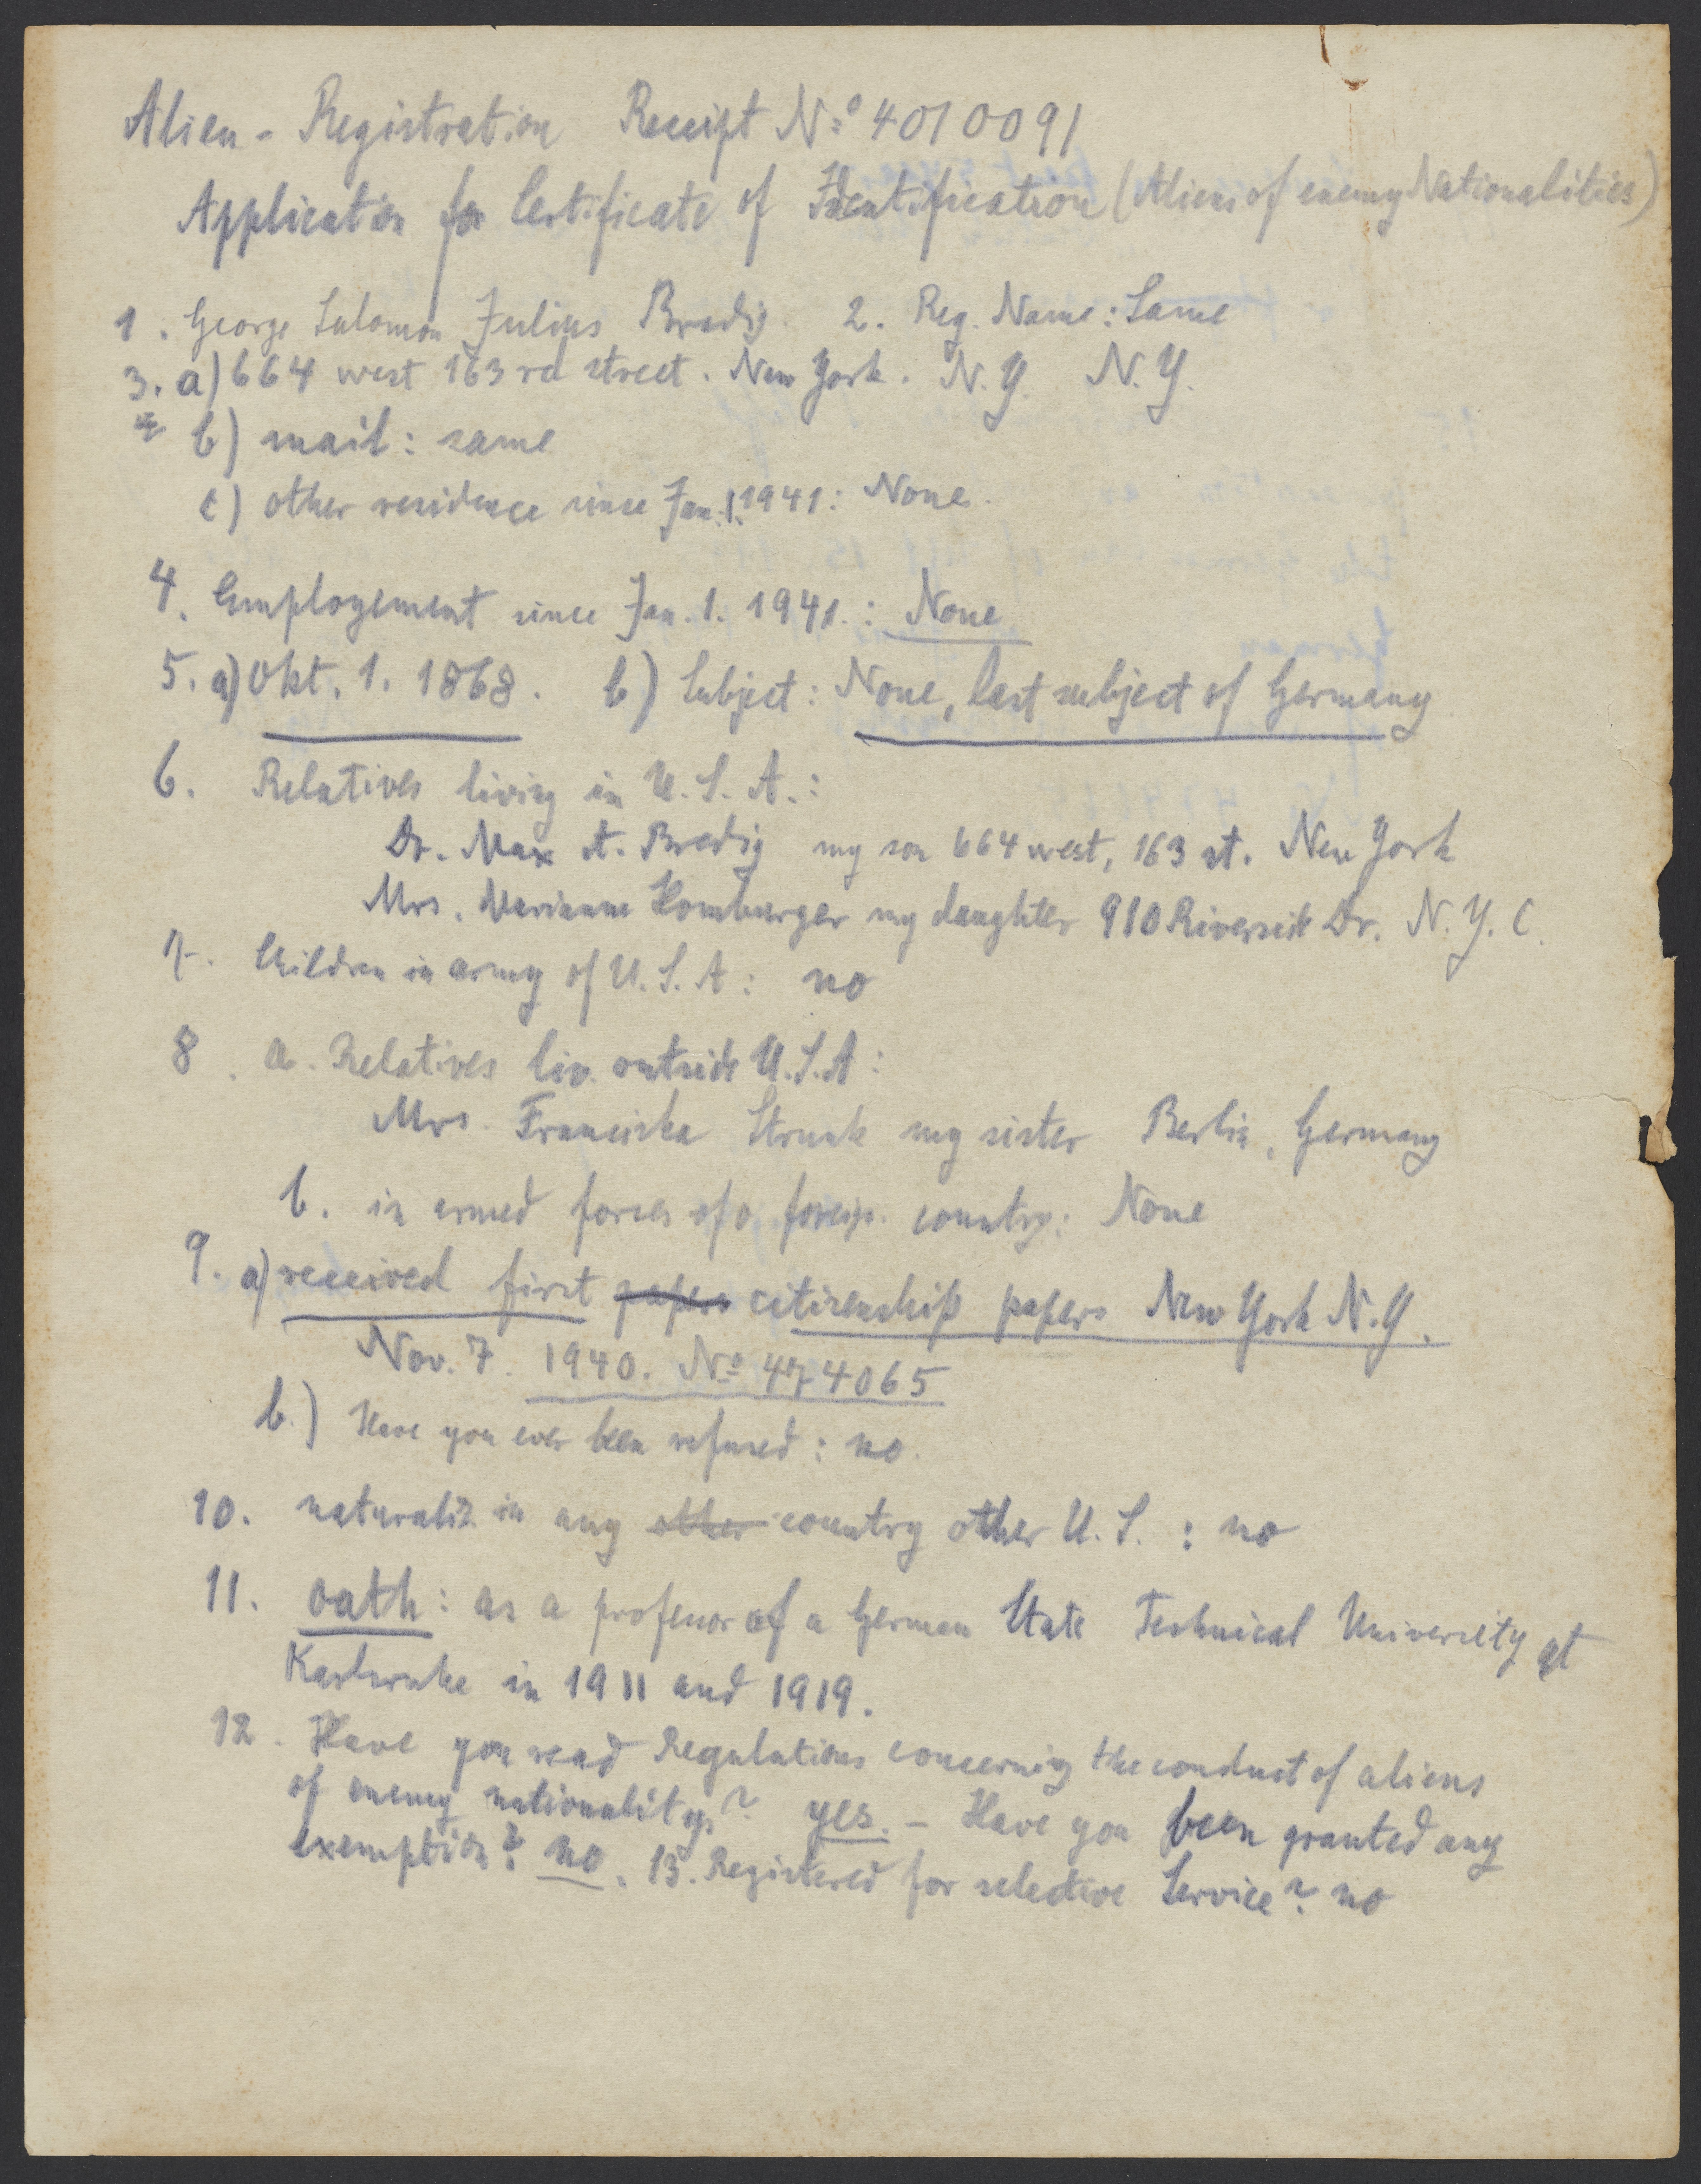 Alien - Registration Receipt No 4010091
Application for Certificate of Identification (Aliens of enemy Nationalities)
1. George Salomon Julius Bredig. 2. Reg. Name: Same
3. a) 664 west 163rd street. New York. N.Y. N.Y.
b) mail: same
c) other residence since Jan. 1. 1941: None.
4. Employement since Jan. 1. 1941.: None
5. a) Okt. 1. 1868. b) Subject: None, last subject of Germany
6. Relatives living in U.S.A.:
Dr. Max A. Bredig my son 664 west, 163 st. New York
Mrs. Marianne Homburger my daughter 910 Riverside Dr. N.Y.C.
7. Children in army of U.S.A: no
8. a. Relatives liv. outside U.S.A:
Mrs. Franciska Strunk my sister Berlin, Germany
b. in armed forces of a foreign country: None
9. a) received first papers citizenship papers New York N.Y.
Nov. 7. 1940. No 474065
b.) Have you ever been refused: no.
10. naturaliz in any other country other U.S.: no
11. oath: as a professor of a German State Technical University at
Karlsruhe in 1911 and 1919.
12. Have you read Regulations concerning the conduct of aliens
of enemy nationalitys? yes. - Have you been granted any
exemption? no. 13. Registered for selective Service? no